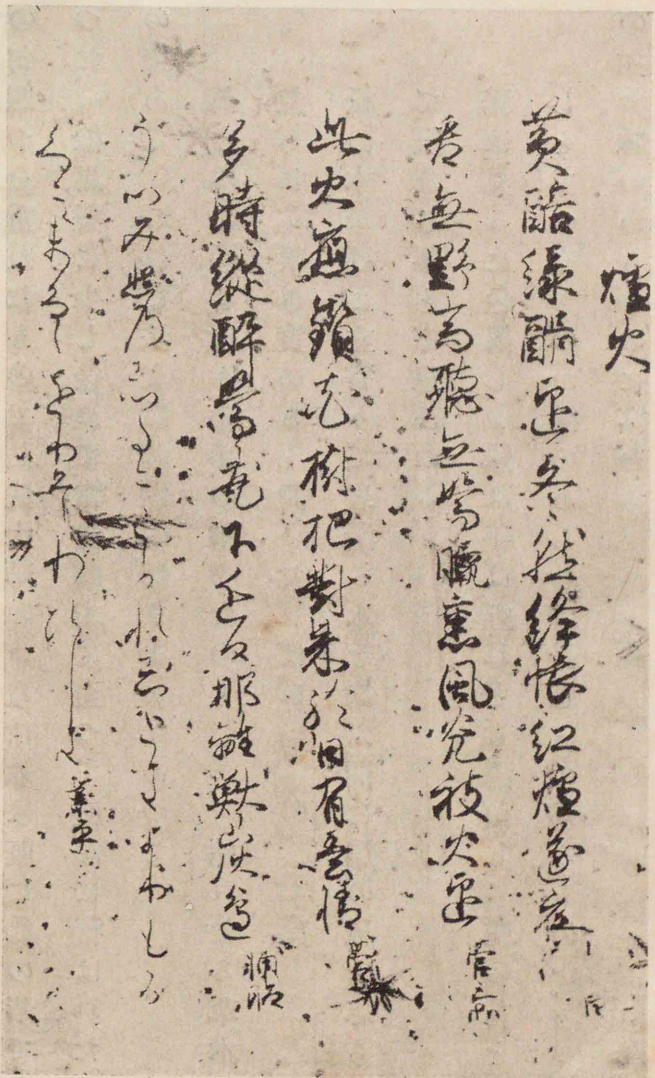 爐火
黄醅緑醑迎冬熟絳帳紅爐逐夜開 白
看無野馬聴無鶯臘裏風光被火迎
此火應鑽花樹把對来終日有春情
多時縦酔鶯花下近日那離獣炭邊 輔昭
うつみ火のしたにこかれしときよりもか
くにくまるゝをりそわひしき 業平